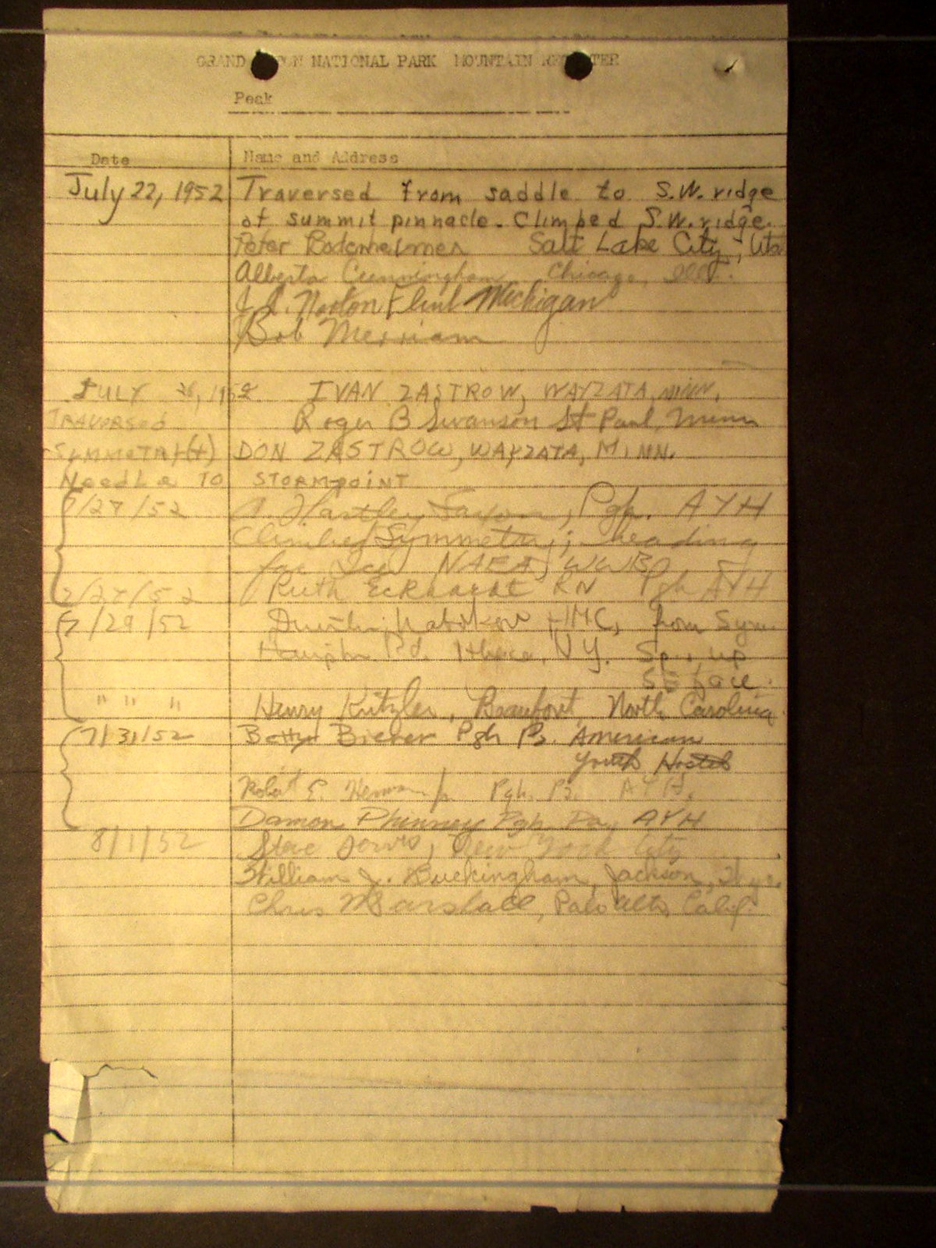 GRAND TETON NATIONAL PARK MOUNTAIN REGISTER
Peak
Date Name and Address
July 22, 1952 Traversed from saddle to S.W. ridge
of summit pinnacle. Climbed S.W. ridge.
Peter Bodenheimer Salt Lake City, Uta
Alberta Cunningham Chicago, Ill.
Flint Michigan
Bob Merriam
JULY 26, 1952 IVAN ZASTROW, WAYZATA, MINN.
TRAVERSED Roger B Swanson St Paul, Minn
SYMMETRY(+) DON ZASTROW, WAYZATA, MINN.
NEEDLE TO STORMPOINT
7/27/52 Hartley Pgh. AYH
Climbed Symmetry; heading
for
7/27/52 Ruth Eckhardt RN Pgh AYH
7/29/52 Dmitri Nabokov HMC, from Sym.
Rd. Ithaca, N.Y. up
SE face.
" " " Henry Kritzler, Beaufort, North Carolina
7/31/52 Bettye Biever Pgh Pa. American
Youth Hostels
Robert E. Pgh. Pa. AYH.
Damon Phinney Pgh. Pa, AYH
8/1/52 Steve Jervis, New York City
William J. Buckingham, Jackson, Wyo.
Chris Marshall, Palo Alto, Calif.